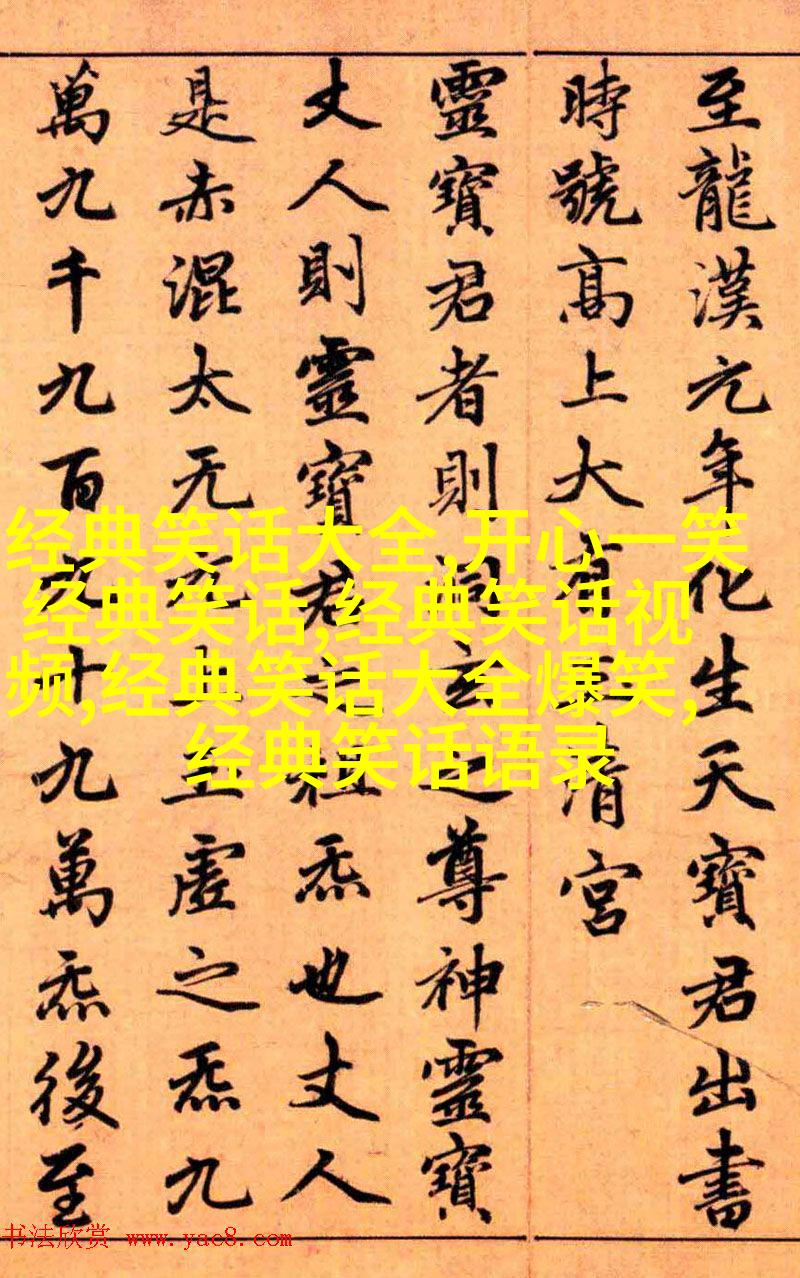 至龍漢元年化生天寶君出書
時號高上大有玉清宮
靈寶君者則洞玄之尊神靈寶
丈人則靈寶君之祖炁也丈人
是赤混太无元上玉虛之炁九
萬九千九百九十九萬炁後至
经典笑话大全,开心一笑
经典笑话,经典笑话视
频,经典笑话大全爆笑,
经典笑话语录
书法欣赏 www.yac8.com